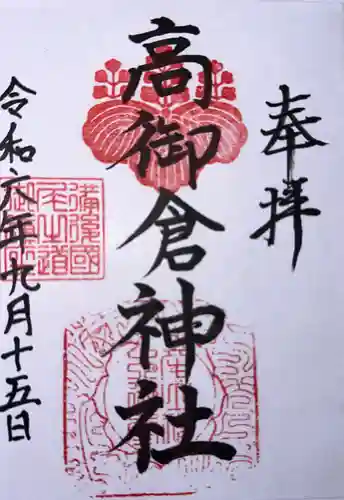 奉拝
高御倉神社
備後國
尾之道
令和六年九月十五日